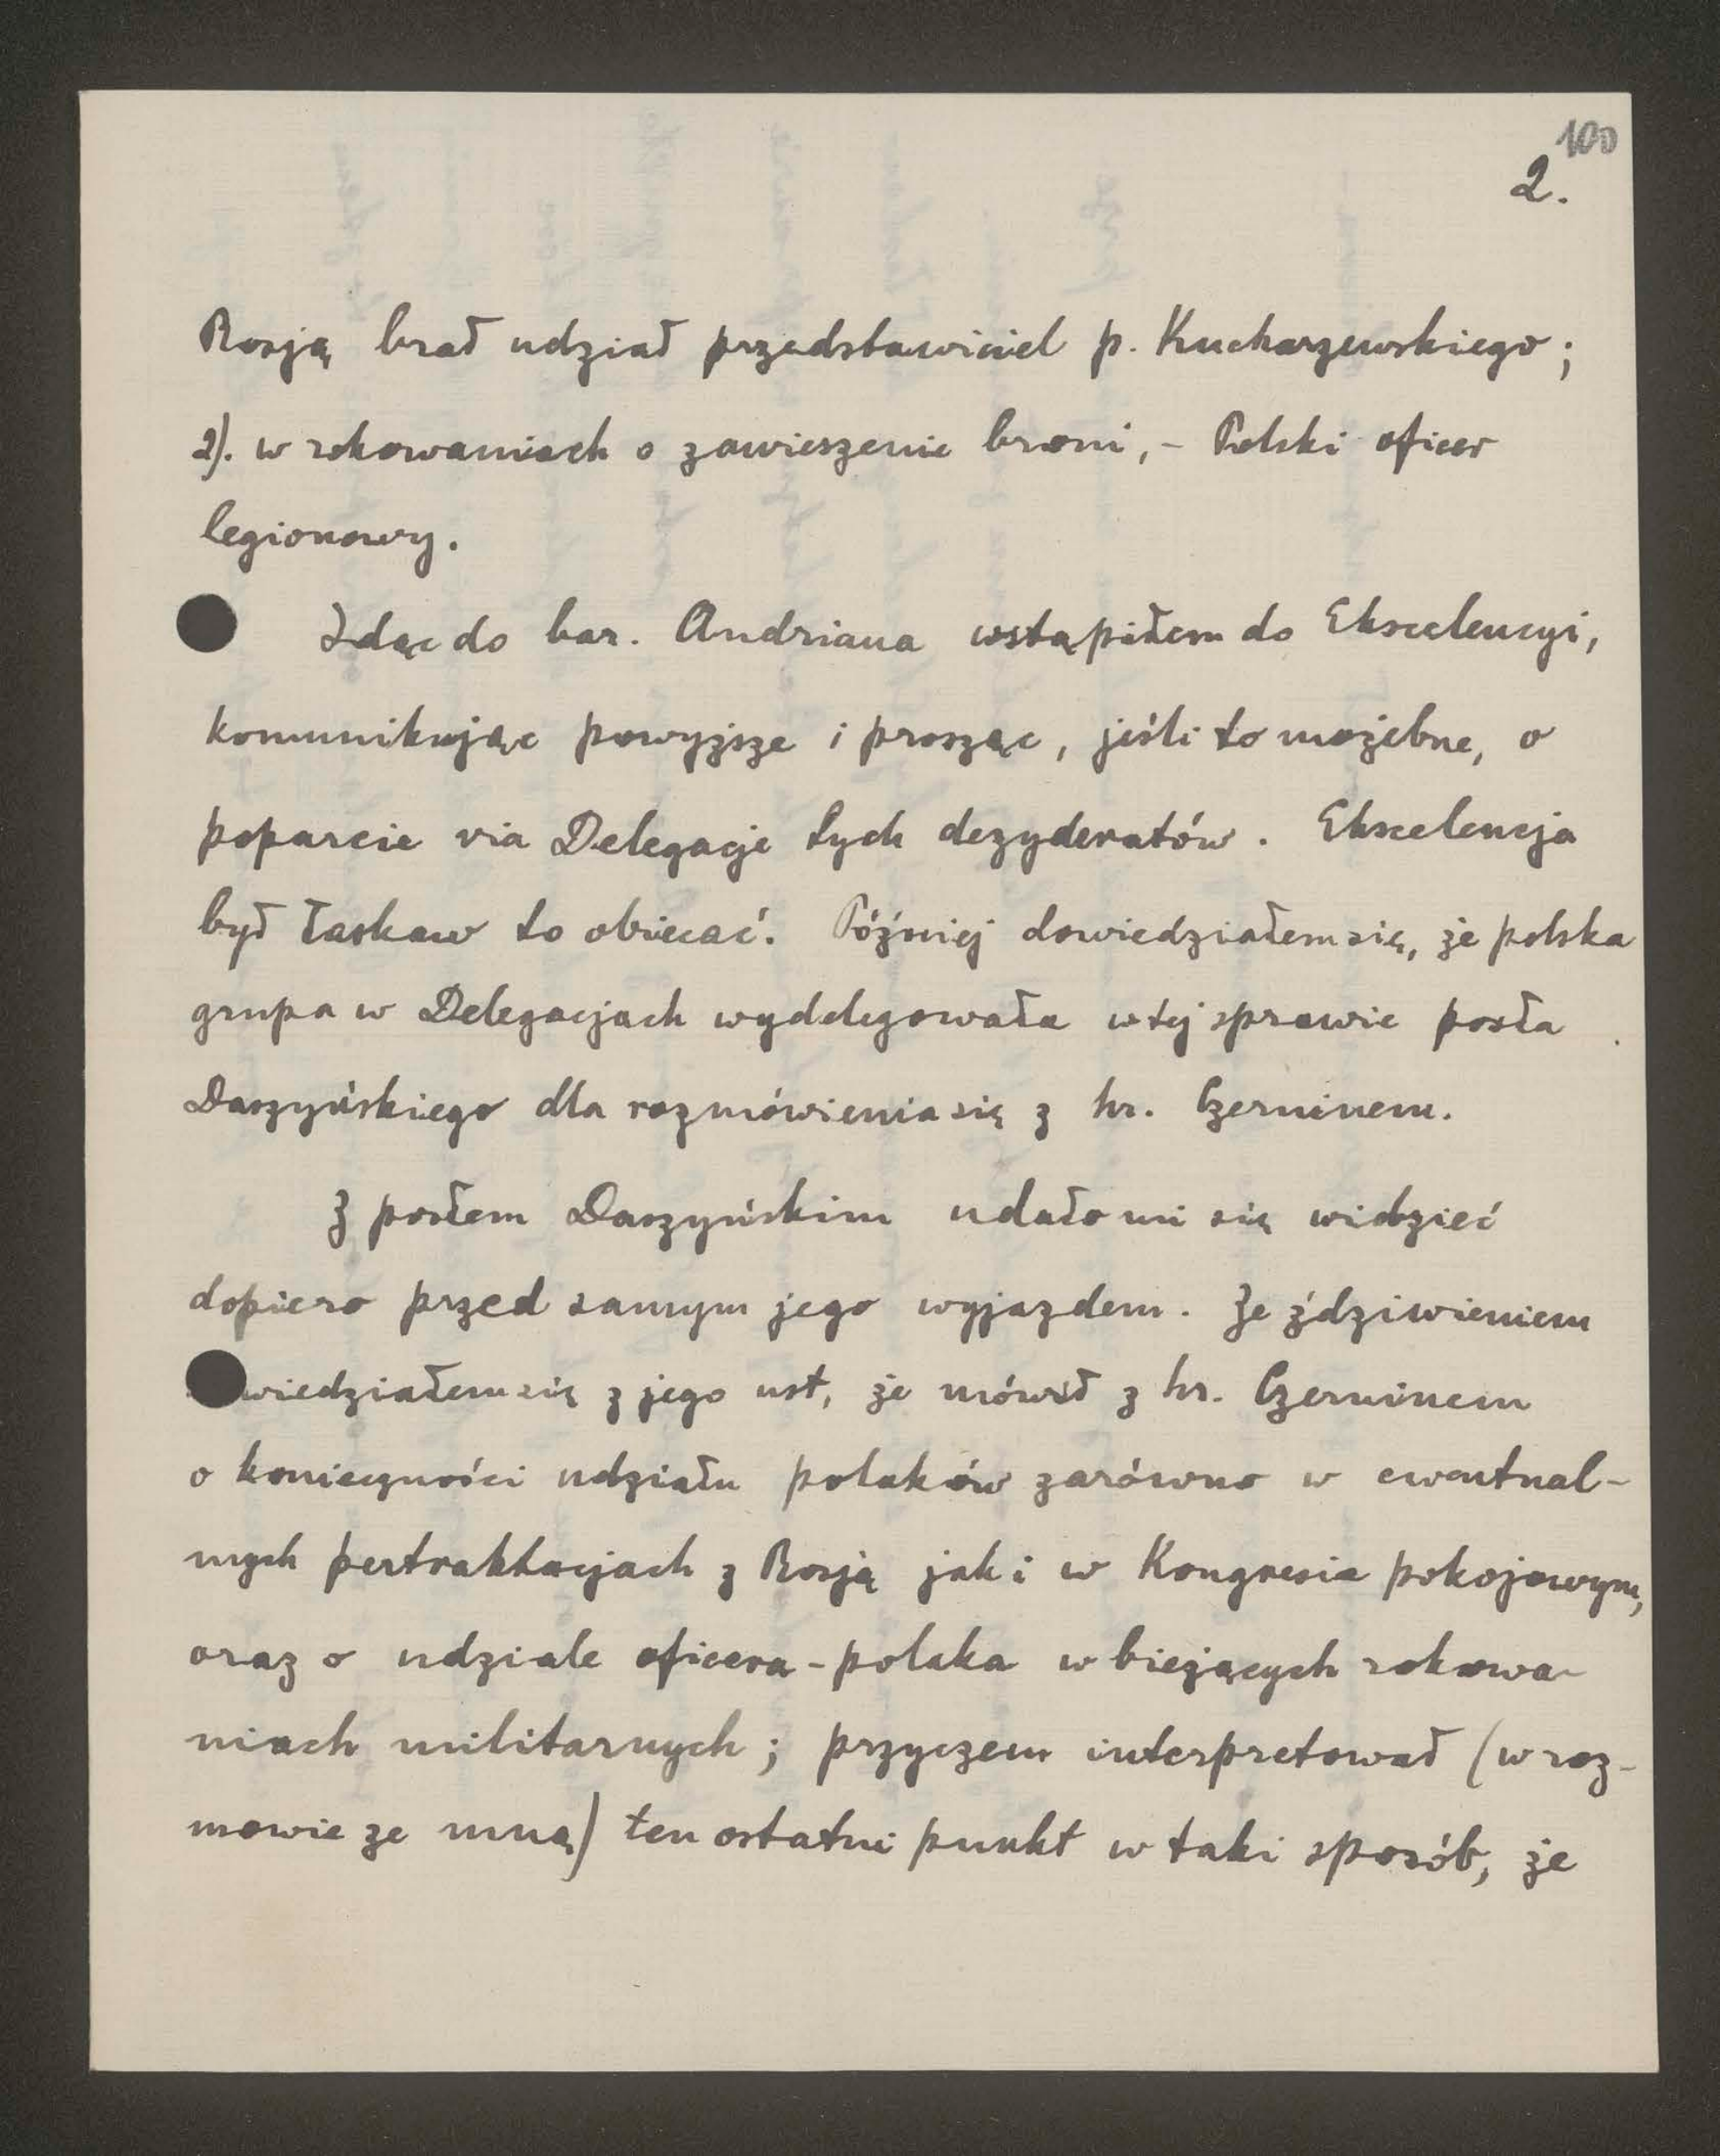 100
2.
Rosją brał udział przedstawiciel p. Kucharzewskiego;
2). w rokowaniach o zawieszenie broni, - Polski oficer
legionowy.
Idąc do bar. Andriana wstąpiłem do Ekscelencyi,
komunikując powyższe i prosząc, jeśli to możebne, o
poparcie via Delegacje tych dezyderatów. Ekscelencja
był łaskaw to obiecać. Później dowiedziałem się, że polska
grupa w Delegacjach wydelegowała w tej sprawie posła
Daszyńskiego dla rozmówienia się z hr. Czerninem.
Z posłem Daszyńskim udało mi się widzieć
dopiero przed samym jego wyjazdem. Ze ździwieniem
wiedziałem się z jego ust, że mówił z hr. Czerninem
o konieczności udziału polaków zarówno w ewentual-
nych pertraktacjach z Rosją jak i w Kongresie pokojowym,
oraz o udziale oficera - polaka w bieżących rokowa-
niach militarnych; przyczem interpretował (w roz-
mowie ze mną) ten ostatni punkt w taki sposób, że